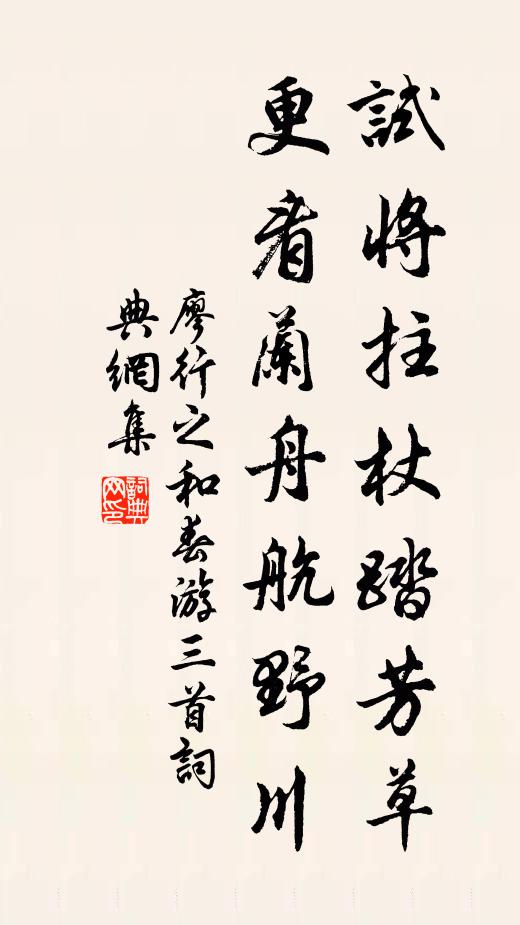 試將拄杖踏芳草
更看蘭舟航野川
廖行之和春游三首詞
典網集
詞典網印